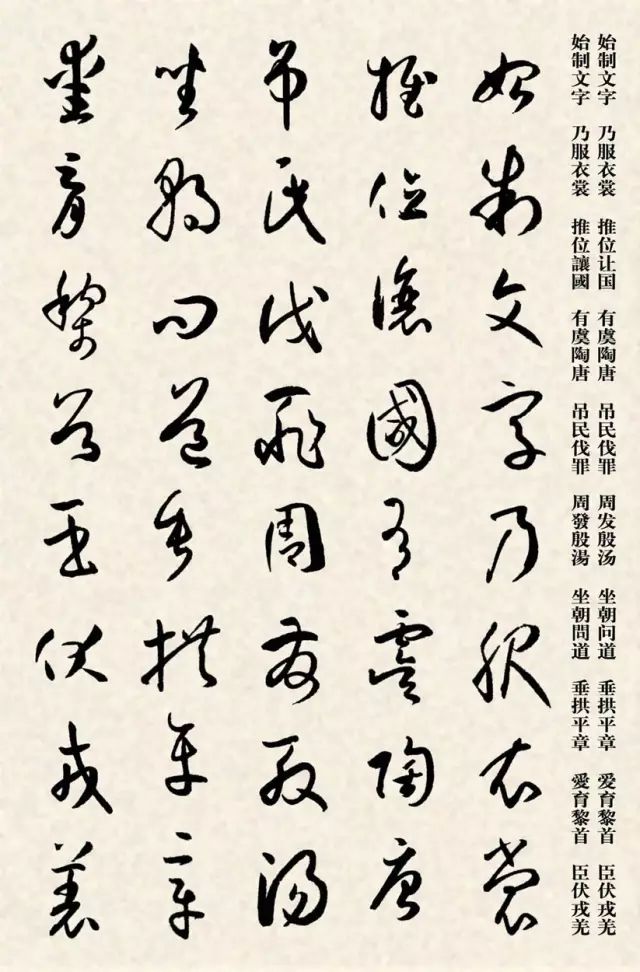 始制文字 乃服衣裳 推位让国 有虞陶唐 吊民伐罪 周发殷汤 坐朝问道 垂拱平章 爱育黎首 臣伏戎羌
始制文字 乃服衣裳 推位讓國 有虞陶唐 吊民伐罪 周發殷湯 坐朝問道 垂拱平章 愛育黎首 臣伏戎羌
始制文字乃服衣裳
推位讓國有虞陶唐
吊民伐罪周發殷湯
坐朝問道垂拱平章
愛育黎首臣伏戎羌